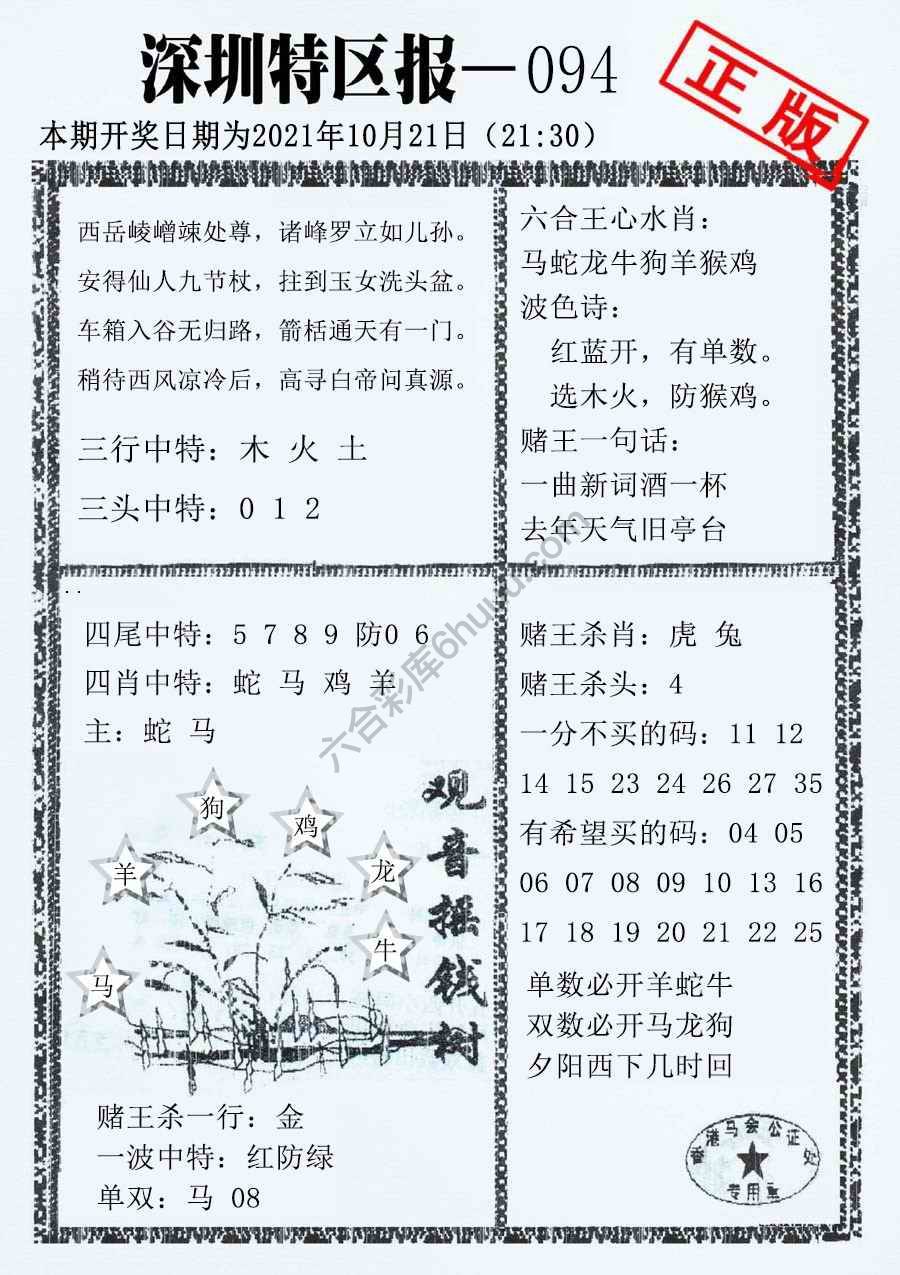 深圳特区报—094
正版
本期开奖日期为2021年10月21日（21:30）
西岳崚嶒竦处尊，诸峰罗立如儿孙。
安得仙人九节杖，拄到玉女洗头盆。
车箱入谷无归路，箭栝通天有一门。
稍待西风凉冷后，高寻白帝问真源。
三行中特：木 火 土
三头中特：0 1 2
六合王心水肖：
马蛇龙牛狗羊猴鸡
波色诗：
红蓝开，有单数。
选木火，防猴鸡。
赌王一句话：
一曲新词酒一杯
去年天气旧亭台
四尾中特：5 7 8 9 防0 6
四肖中特：蛇 马 鸡 羊
主：蛇 马
狗
鸡
羊
龙
牛
马
观音摇钱树
赌王杀一行：金
一波中特：红防绿
单双：马 08
赌王杀肖：虎 兔
赌王杀头：4
一分不买的码：11 12
14 15 23 24 26 27 35
有希望买的码：04 05
06 07 08 09 10 13 16
17 18 19 20 21 22 25
单数必开羊蛇牛
双数必开马龙狗
夕阳西下几时回
香港马会公证处
专用章
六合彩库6huu.com